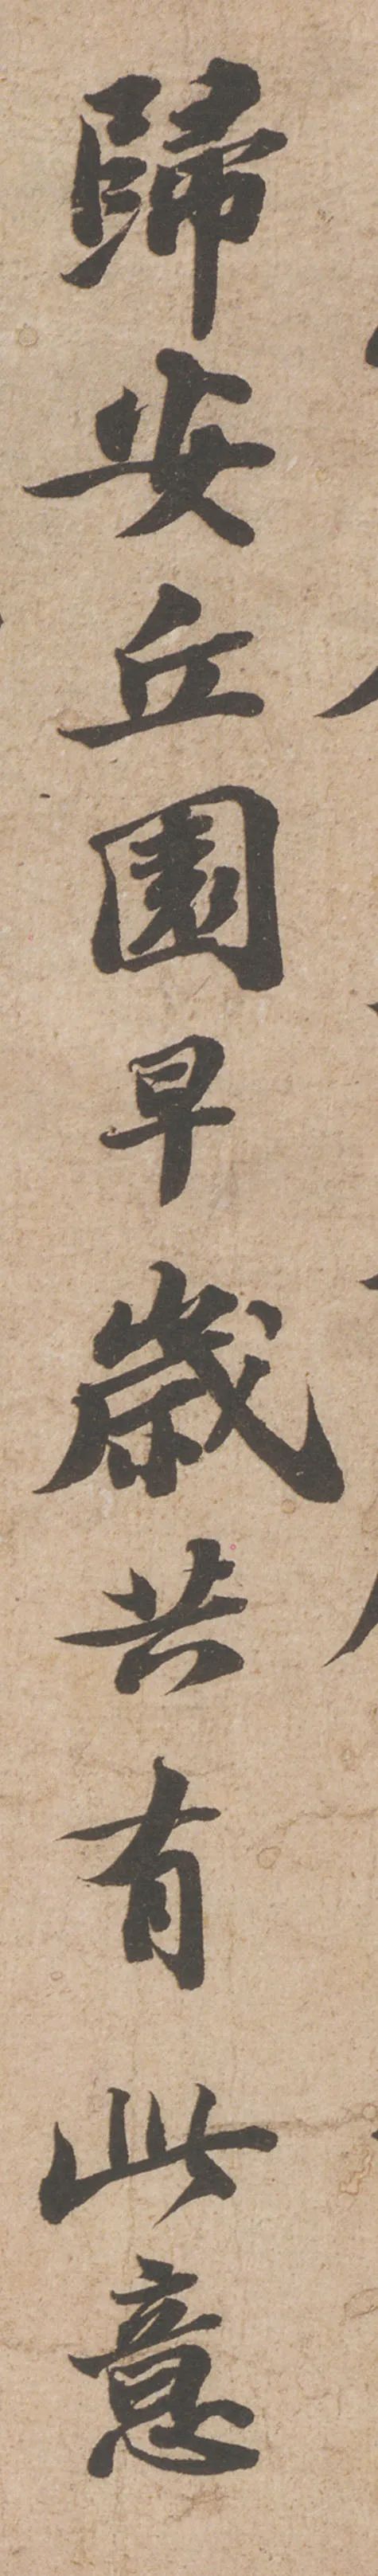 歸安丘園早歲共有此意